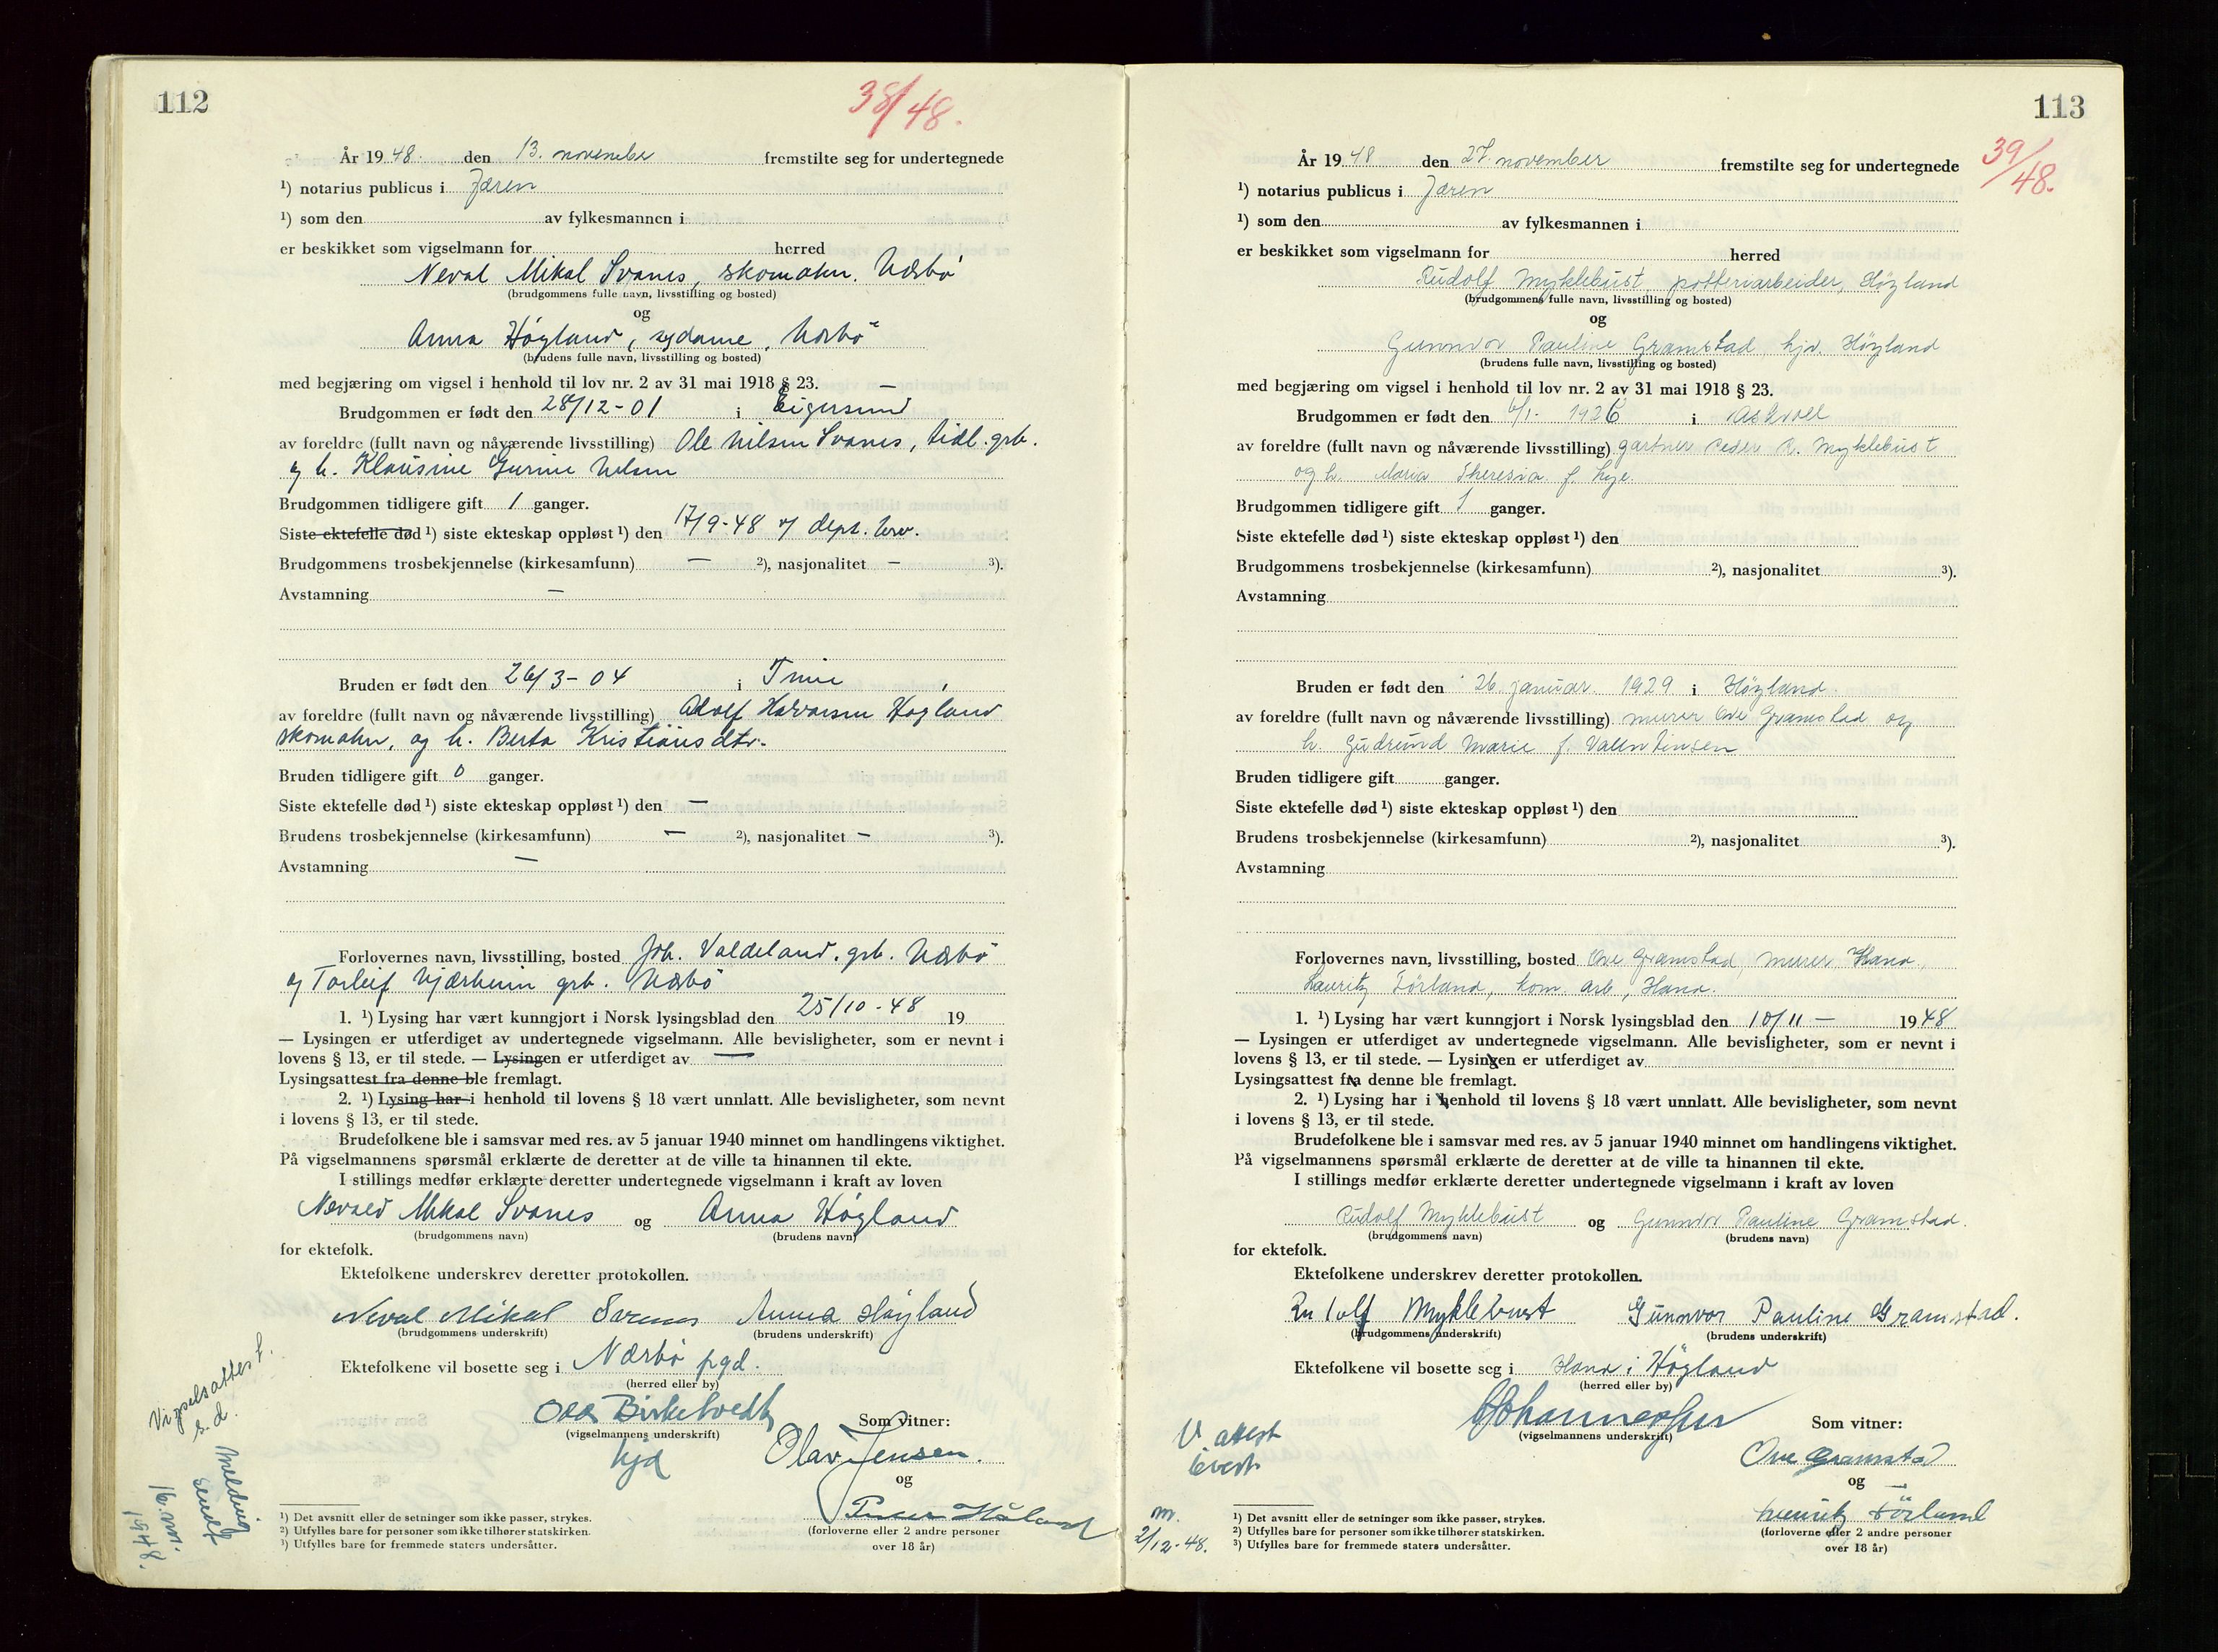 112
38/48.
År 1948. den 13. november fremstilte seg for undertegnede
¹) notarius publicus i Jæren
¹) som den av fylkesmannen i
er beskikket som vigselmann for herred
Neval Mikal Svanes, skomaker. Nærbø
(brudgommens fulle navn, livsstilling og bosted)
og
Anna Høyland, sydame, Nærbø
(brudens fulle navn, livsstilling og bosted)
med begjæring om vigsel i henhold til lov nr. 2 av 31 mai 1918 § 23. —
Brudgommen er født den 28/12-01 i Eigersund
av foreldre (fullt navn og nåværende livsstilling) Ole Nilsen Svanes, tidl. grb.
og h. Klausine Gurine Nelsen
Brudgommen tidligere gift 1 ganger.
Siste ektefelle død ¹) siste ekteskap oppløst ¹) den 17/9-48 v/ dept. brev.
Brudgommens trosbekjennelse (kirkesamfunn) — ²), nasjonalitet — ³).
Avstamning —
Bruden er født den 26/3-04 i Time
av foreldre (fullt navn og nåværende livsstilling) Adolf Halvorsen Høyland
skomaker, og h. Berta Kristiansdtr.
Bruden tidligere gift 0 ganger.
Siste ektefelle død ¹) siste ekteskap oppløst ¹) den —
Brudens trosbekjennelse (kirkesamfunn) — ²), nasjonalitet — ³).
Avstamning —
Forlovernes navn, livsstilling, bosted Joh. Valdeland. grb. Nærbø
og Torleif Njærheim grb. Nærbø
1. ¹) Lysing har vært kunngjort i Norsk lysingsblad den 25/10-48 19
— Lysingen er utferdiget av undertegnede vigselmann. Alle bevisligheter, som er nevnt i
lovens § 13, er til stede. — Lysingen er utferdiget av —
Lysingsattest fra denne ble fremlagt.
2. ¹) Lysing har i henhold til lovens § 18 vært unnlatt. Alle bevisligheter, som nevnt
i lovens § 13, er til stede.
Brudefolkene ble i samsvar med res. av 5 januar 1940 minnet om handlingens viktighet.
På vigselmannens spørsmål erklærte de deretter at de ville ta hinannen til ekte.
I stillings medfør erklærte deretter undertegnede vigselmann i kraft av loven
Mikal Svanes og Anna Høyland
(brudgommens navn) (brudens navn)
for ektefolk.
Ektefolkene underskrev deretter protokollen.
Neval Mikal Svanes Anna Høyland
(brudgommens underskrift) (brudens underskrift)
Ektefolkene vil bosette seg i Nærbø pgd.
(herred eller by)
Birkelvedt
(vigselmannens underskrift)
Som vitner:
Olav Jensen.
og
Håland
(forloverne eller 2 andre personer
over 18 år)
Vigselsattest
s.d.
Melding
sendt
16. nov.
1948.
¹) Det avsnitt eller de setninger som ikke passer, strykes.
²) Utfylles bare for personer som ikke tilhører statskirken.
³) Utfylles bare for fremmede staters undersåtter.
113
39/48.
År 1948 den 27. november fremstilte seg for undertegnede
¹) notarius publicus i Jæren
¹) som den av fylkesmannen i
er beskikket som vigselmann for herred
Rudolf Myklebust, potteriarbeider, Høyland
(brudgommens fulle navn, livsstilling og bosted)
og
Gunnvor Pauline Gramstad hjv. Høyland
(brudens fulle navn, livsstilling og bosted)
med begjæring om vigsel i henhold til lov nr. 2 av 31 mai 1918 § 23.
Brudgommen er født den 6/1- 1926 i Askvoll
av foreldre (fullt navn og nåværende livsstilling) gartner Peder R. Myklebust
og h. Maria Theresia f. Lye.
Brudgommen tidligere gift 1 ganger.
Siste ektefelle død ¹) siste ekteskap oppløst ¹) den
Brudgommens trosbekjennelse (kirkesamfunn) ²), nasjonalitet ³).
Avstamning
Bruden er født den 26. januar 1929 i Høyland.
av foreldre (fullt navn og nåværende livsstilling) murer Ove Gramstad og
h. Gudrund Marie f. Valentinsen
Bruden tidligere gift ganger.
Siste ektefelle død ¹) siste ekteskap oppløst ¹) den
Brudens trosbekjennelse (kirkesamfunn) ²), nasjonalitet ³).
Avstamning
Forlovernes navn, livsstilling, bosted Ove Gramstad, murer, Hana,
Lauritz Törland, kom. arb, Hana.
1. ¹) Lysing har vært kunngjort i Norsk lysingsblad den 10/11 — 1948
— Lysingen er utferdiget av undertegnede vigselmann. Alle bevisligheter, som er nevnt i
lovens § 13, er til stede. — Lysingen er utferdiget av
Lysingsattest fra denne ble fremlagt.
2. ¹) Lysing har i henhold til lovens § 18 vært unnlatt. Alle bevisligheter, som nevnt
i lovens § 13, er til stede.
Brudefolkene ble i samsvar med res. av 5 januar 1940 minnet om handlingens viktighet.
På vigselmannens spørsmål erklærte de deretter at de ville ta hinannen til ekte.
I stillings medfør erklærte deretter undertegnede vigselmann i kraft av loven
Rudolf Myklebust og Gunnvor Pauline Gramstad.
(brudgommens navn) (brudens navn)
for ektefolk.
Ektefolkene underskrev deretter protokollen.
Rudolf Myklebust Gunnvor Pauline Gramstad.
(brudgommens underskrift) (brudens underskrift)
Ektefolkene vil bosette seg i Hana i Høyland
(herred eller by)
(vigselmannens underskrift)
Som vitner:
Ove Gramstad
og
Lauritz Törland
(forloverne eller 2 andre personer
over 18 år)
V. attest
m.
2/12-48.
¹) Det avsnitt eller de setninger som ikke passer, strykes.
²) Utfylles bare for personer som ikke tilhører statskirken.
³) Utfylles bare for fremmede staters undersåtter.